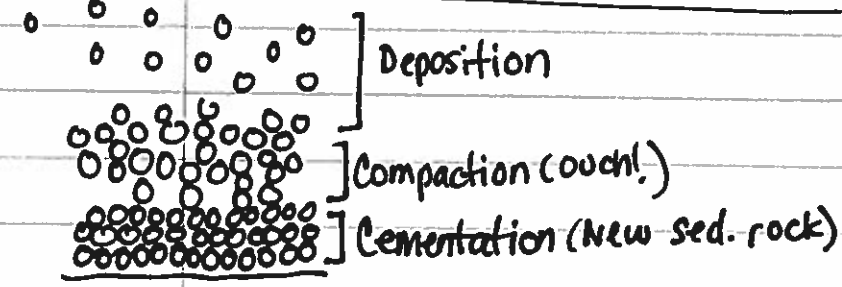 Deposition
Compaction (ouch!)
Cementation (New sed. rock)